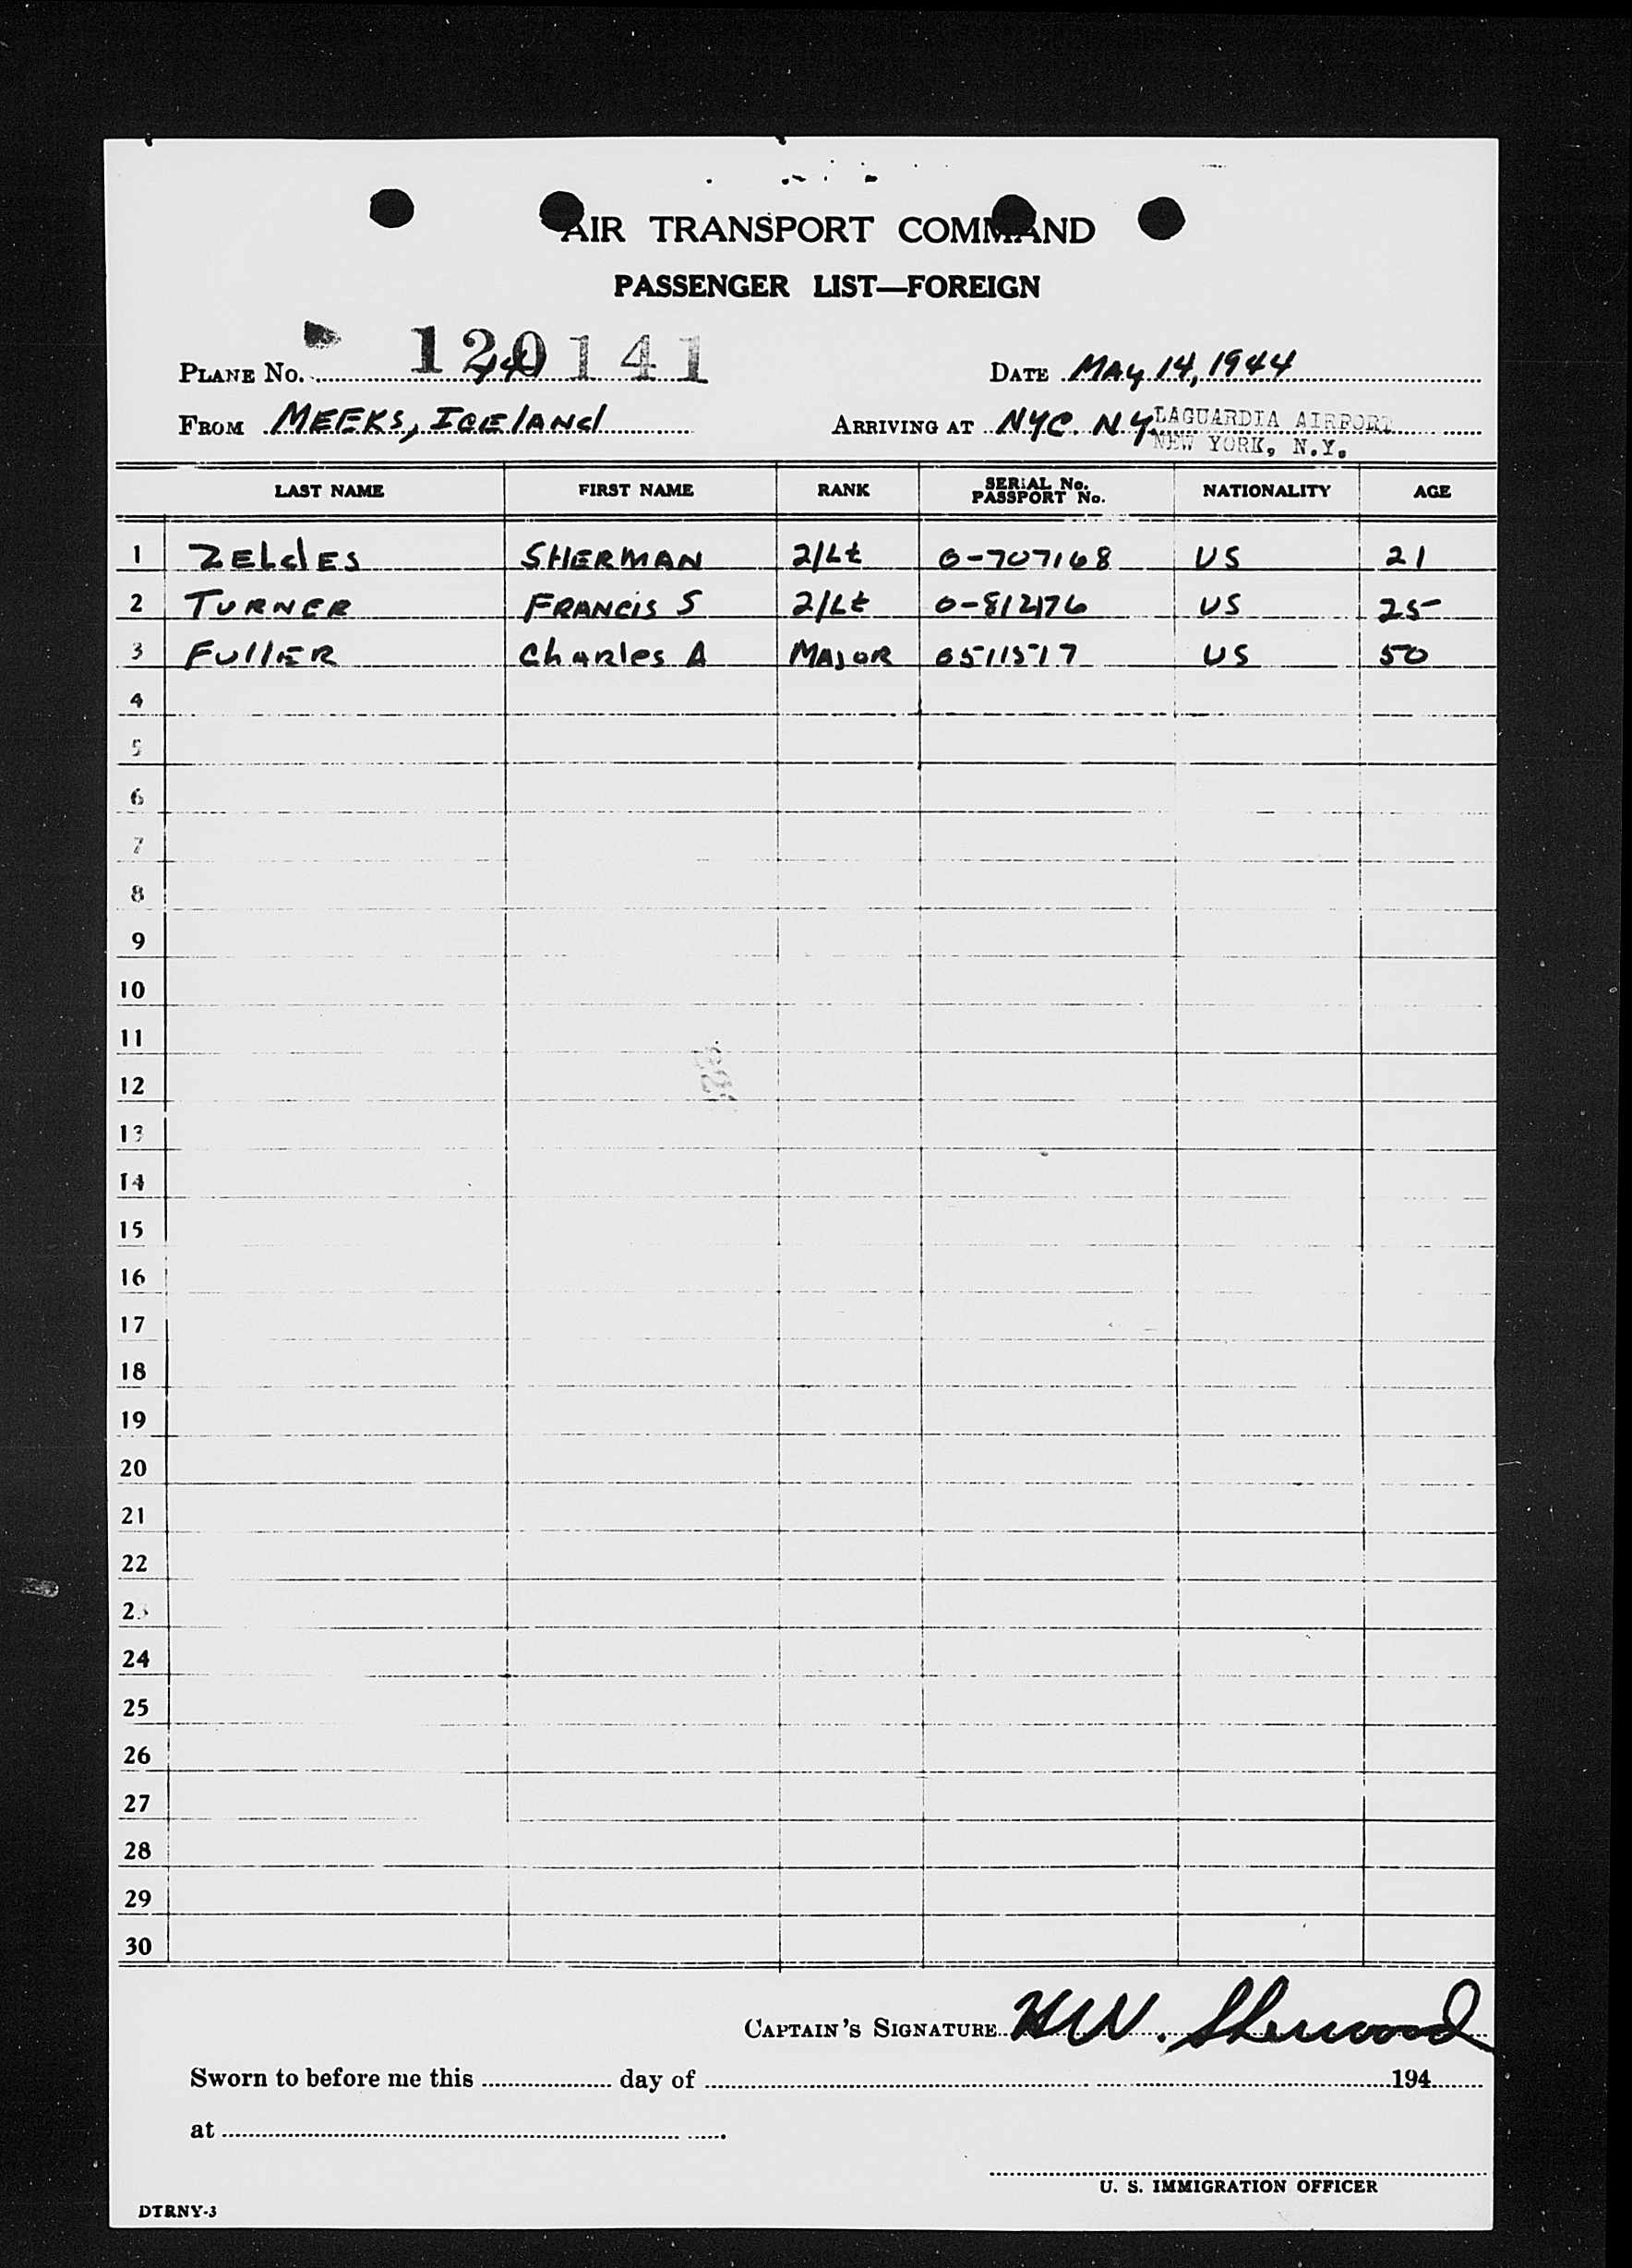 AIR TRANSPORT COMMAND
PASSENGER LIST—FOREIGN
PLANE No. 120141
DATE MAY 14, 1944
FROM MEEKS, ICELANd
ARRIVING AT NYC. N.Y. LAGUARDIA AIRPORT
NEW YORK, N.Y.
LAST NAME FIRST NAME RANK SERIAL No. PASSPORT No. NATIONALITY AGE
1 ZELdES SHERMAN 2/Lt O-707168 US 21
2 TURNER FRANCIS S 2/Lt O-812176 US 25
3 FullER ChARles A MAJOR O511517 US 50
4
5
6
7
8
9
10
11
12
13
14
15
16
17
18
19
20
21
22
23
24
25
26
27
28
29
30
CAPTAIN'S SIGNATURE HW. Sherwood
Sworn to before me this day of 194
at
U. S. IMMIGRATION OFFICER
DTRNY-3